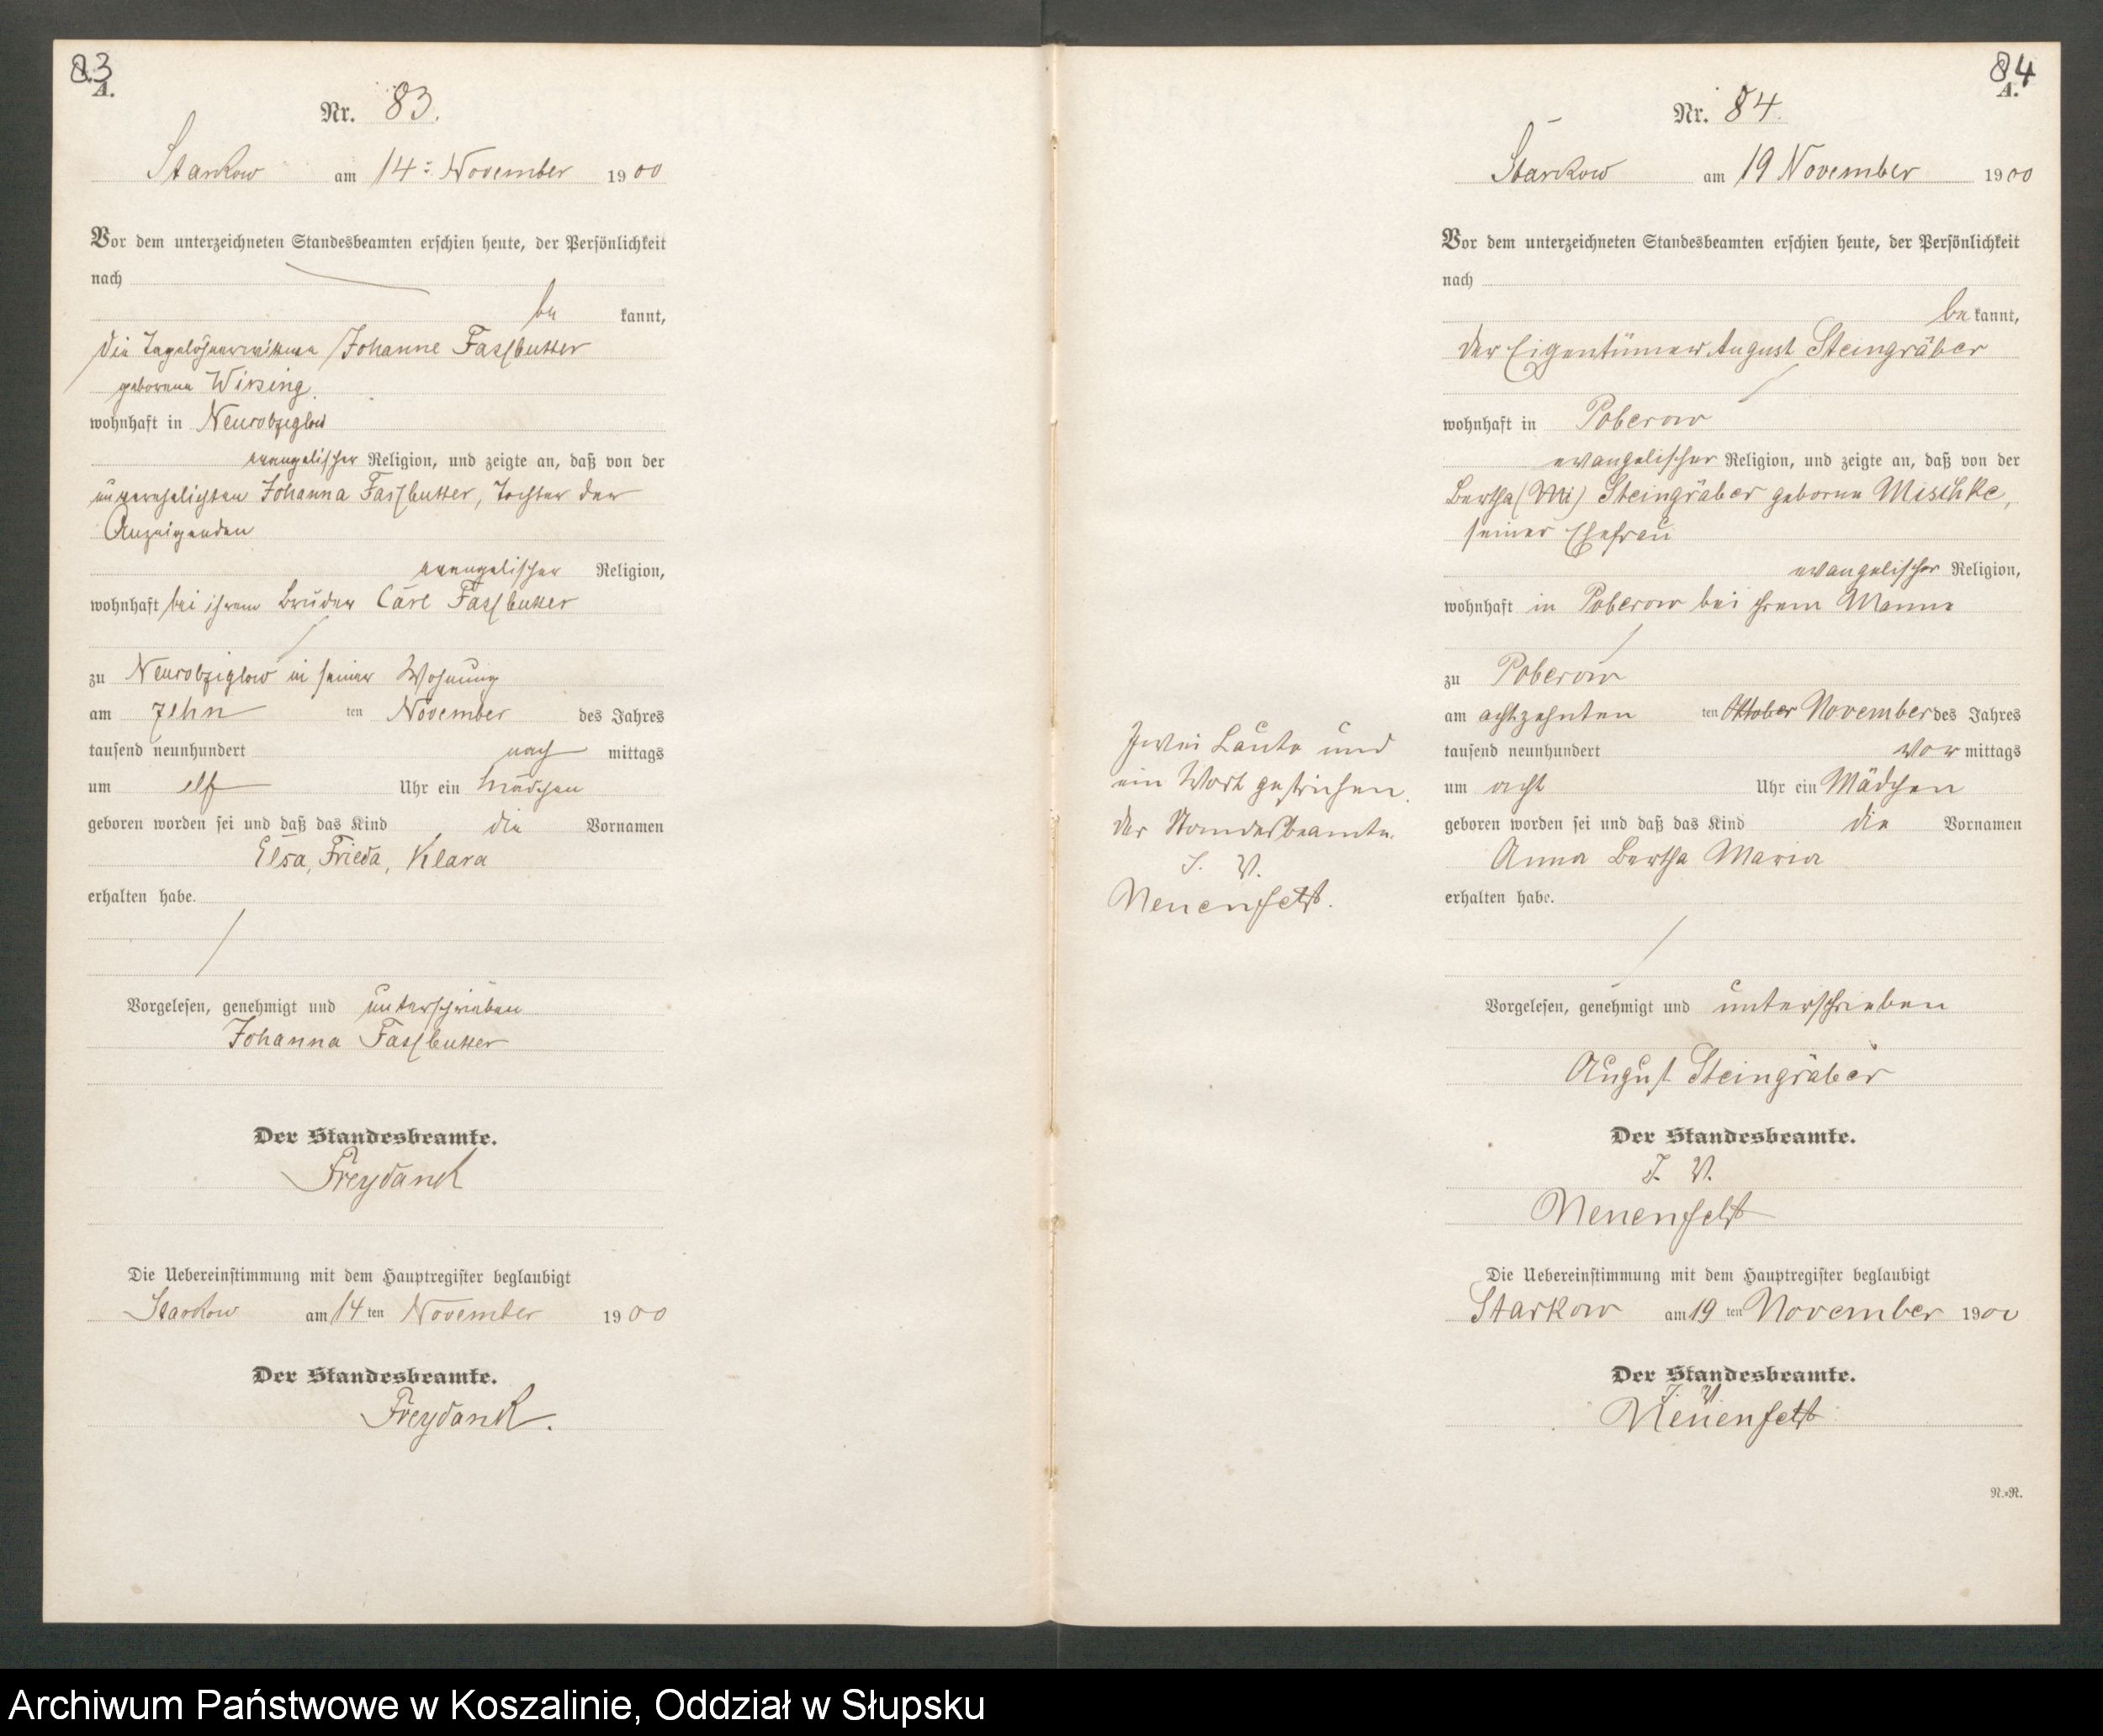 83
A.
Nr. 83.
Starkow am 14: November 1900
Vor dem unterzeichneten Standesbeamten erschien heute, der Persönlichkeit
nach
be kannt,
die Tagelöhnerwittwe Johanne Fassbutter
geborene Wirsing.
wohnhaft in Neurobziglow
evangelischer Religion, und zeigte an, daß von der
unverehelichten Johanna Fassbutter, Tochter der
Anzeigenden
evangelischer Religion,
wohnhaft bei ihrem Bruder Carl Fassbutter
zu Neurobziglow in seiner Wohnung
am zehn ten November des Jahres
tausend neunhundert nach mittags
um elf Uhr ein Mädchen
geboren worden sei und daß das Kind die Vornamen
Elsa, Frieda, Klara
erhalten habe.
Vorgelesen, genehmigt und unterschrieben
Johanna Fassbutter
Der Standesbeamte.
Freydank
Die Uebereinstimmung mit dem Hauptregister beglaubigt
Starkow am 14 ten November 1900
Der Standesbeamte.
Freydank.
84
A.
Nr. 84.
Starkow am 19 November 1900
Vor dem unterzeichneten Standesbeamten erschien heute, der Persönlichkeit
nach
be kannt,
der Eigentümer August Steingräber
wohnhaft in Poberow
evangelischer Religion, und zeigte an, daß von der
Bertha (Mi) Steingräber geborne Mischke,
seiner Ehefrau
evangelischer Religion,
wohnhaft in Poberow bei ihrem Manne
zu Poberow
am achtzehnten ten Oktober November des Jahres
tausend neunhundert vor mittags
um acht Uhr ein Mädchen
geboren worden sei und daß das Kind die Vornamen
Anna Bertha Maria
erhalten habe.
Zwei Laute und
ein Wort gestrichen.
Der Standesbeamte.
J. V.
Neuenfeldt.
Vorgelesen, genehmigt und unterschrieben
August Steingräber
Der Standesbeamte.
J. V.
Neuenfeldt
Die Uebereinstimmung mit dem Hauptregister beglaubigt
Starkow am 19 ten November 1900
Der Standesbeamte.
J. V.
Neuenfeldt
N.=N.
Archiwum Państwowe w Koszalinie, Oddział w Słupsku